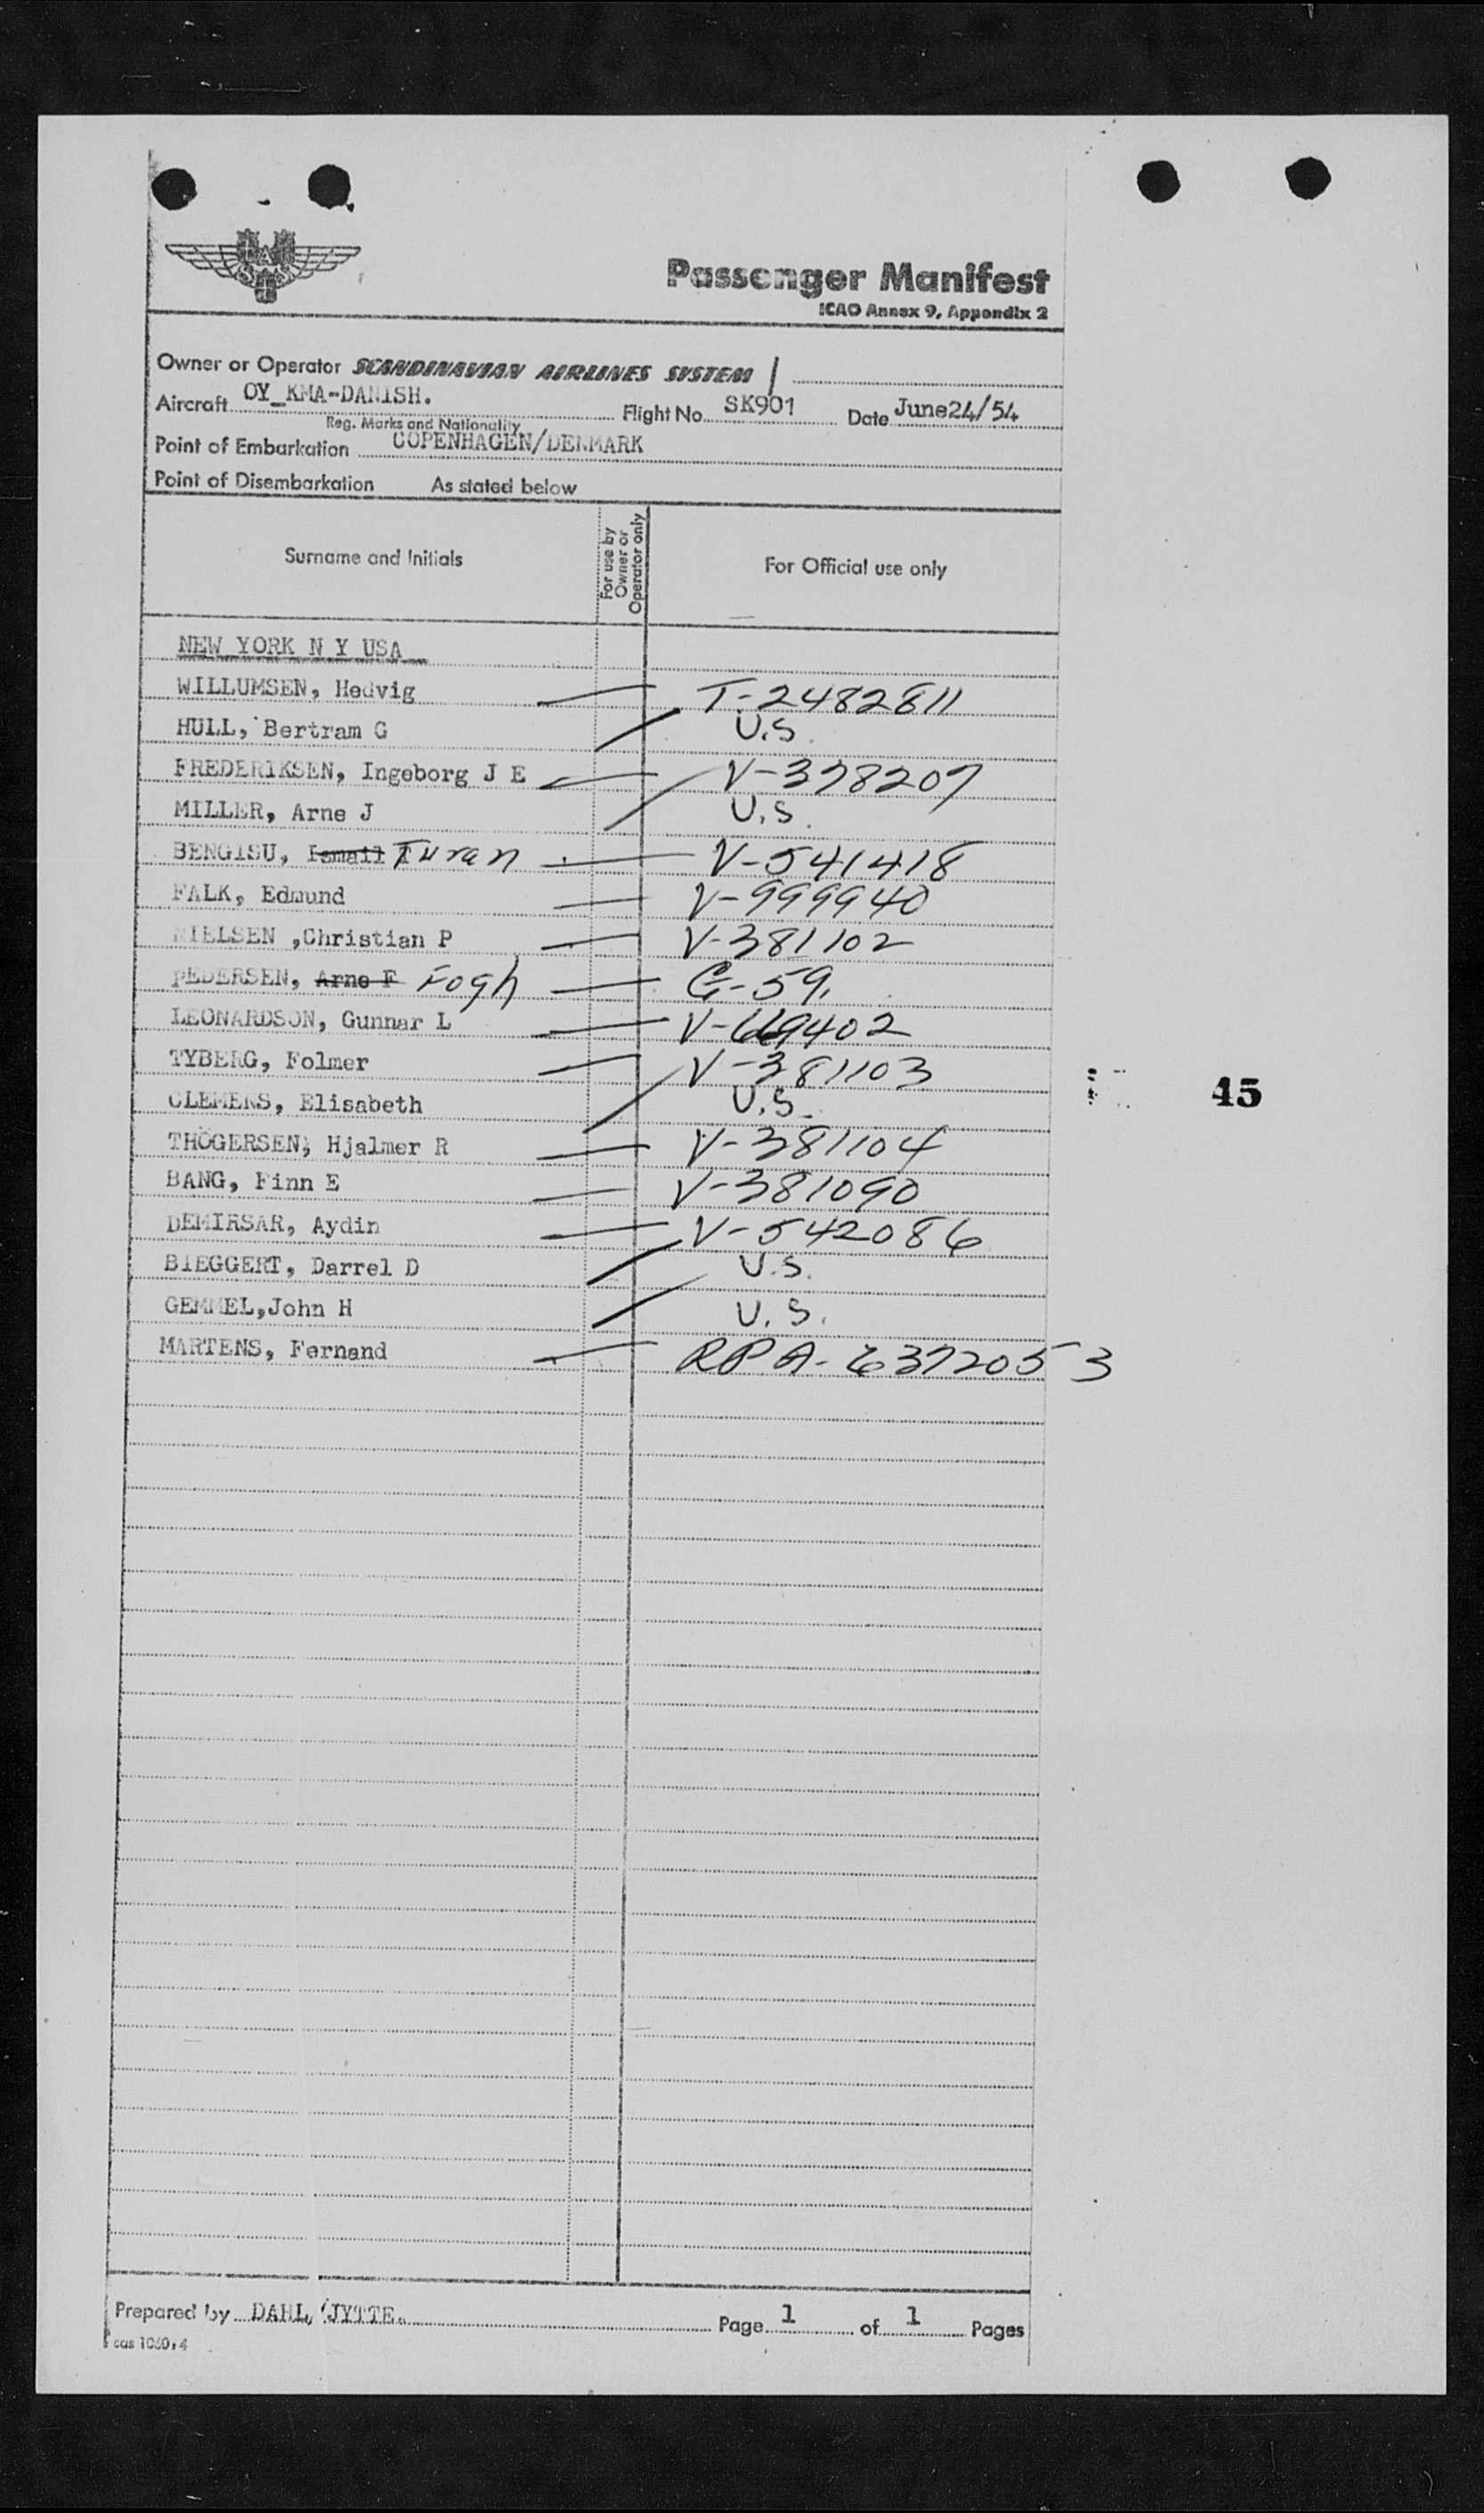 SAS
Passenger Manifest
ICAO Annex 9, Appendix 2
Owner or Operator SCANDINAVIAN AIRLINES SYSTEM
Aircraft OY_KMA-DANISH. Flight No. SK901 Date June24/54
Reg. Marks and Nationality
Point of Embarkation COPENHAGEN/DENMARK
Point of Disembarkation As stated below
Surname and Initials For use by Owner or Operator only For Official use only
NEW YORK N Y USA
WILLUMSEN, Hedvig T-2482811
HULL, Bertram G U.S.
FREDERIKSEN, Ingeborg J E V-378207
MILLER, Arne J U.S.
BENGISU, Ismail T Turan V-541418
FALK, Edmund V-999940
NIELSEN ,Christian P V-381102
PEDERSEN, Arne F Fogh G-59.
LEONARDSON, Gunnar L V-669402
TYBERG, Folmer V-381103
CLEMENS, Elisabeth U.S.
45
THÖGERSEN, Hjalmer R V-381104
BANG, Finn E V-381090
DEMIRSAR, Aydin V-542086
BIEGGERT, Darrel D U.S.
GEMMEL,John H U.S.
MARTENS, Fernand RPA-6372053
Prepared by DAHL, JYTTE. Page 1 of 1 Pages